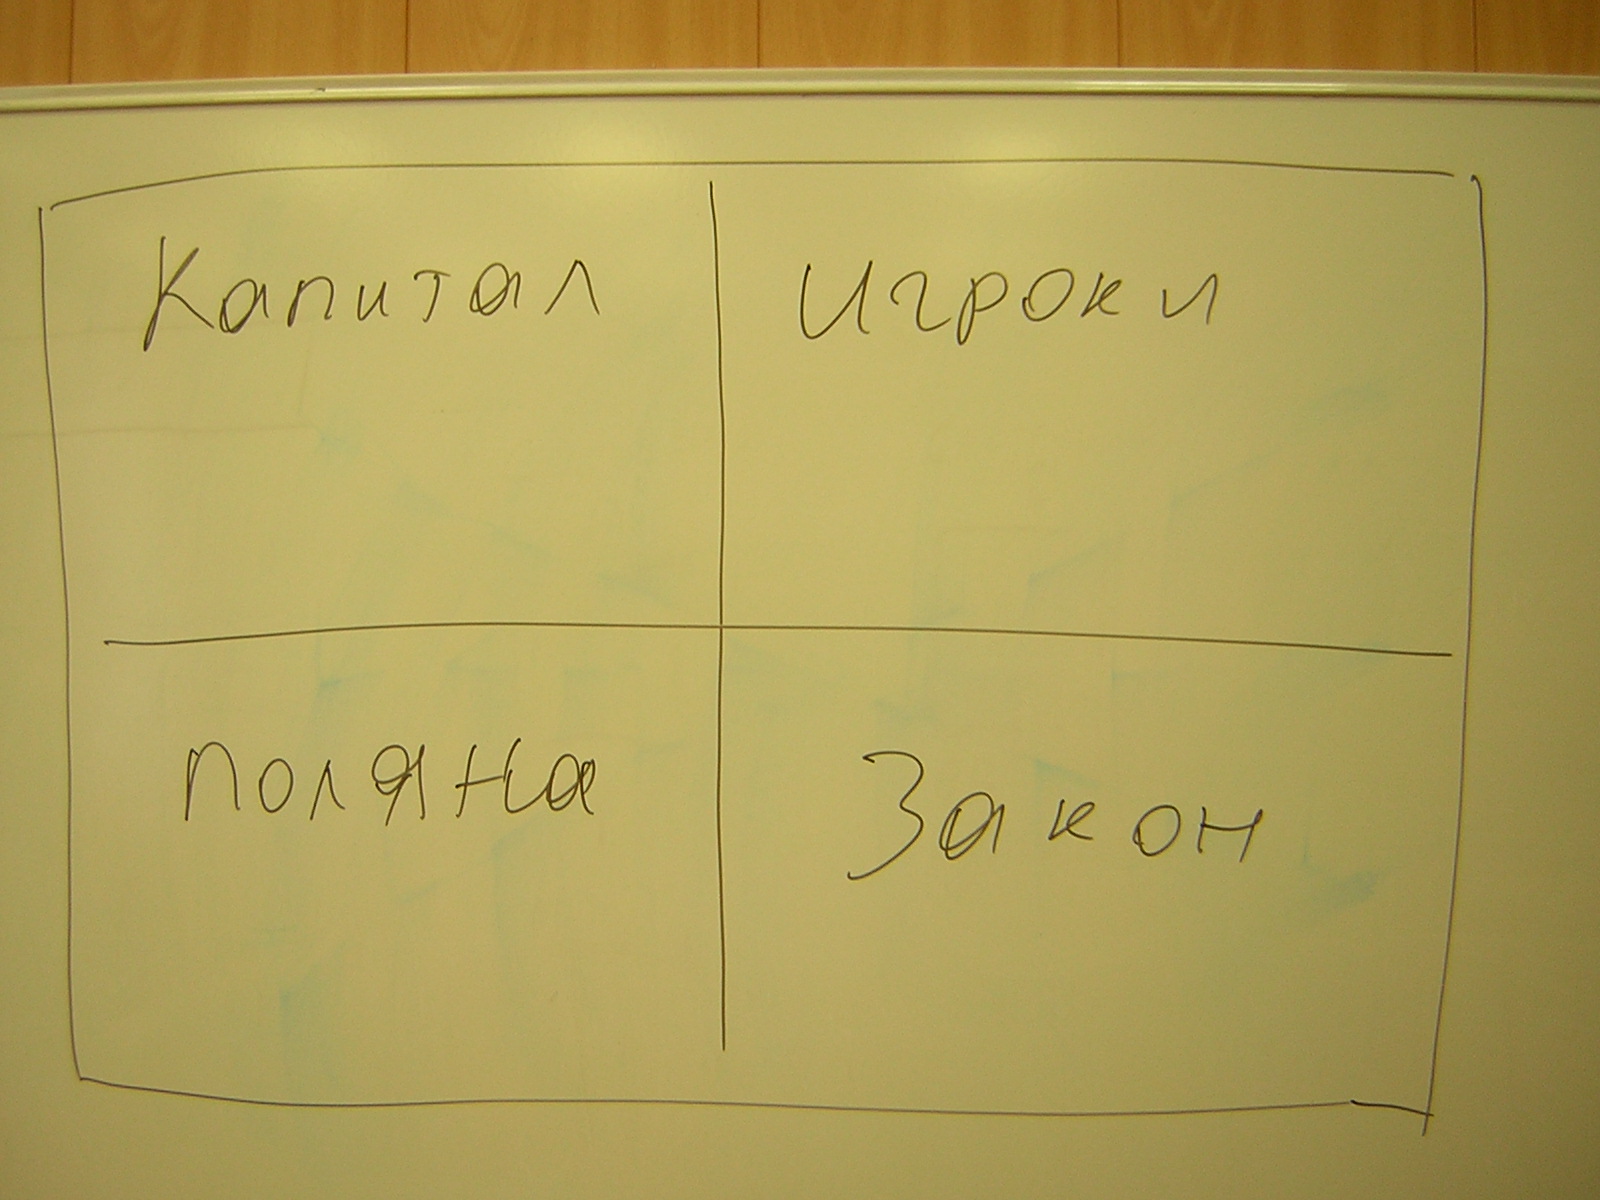 Капитал
Игроки
поляна
Закон